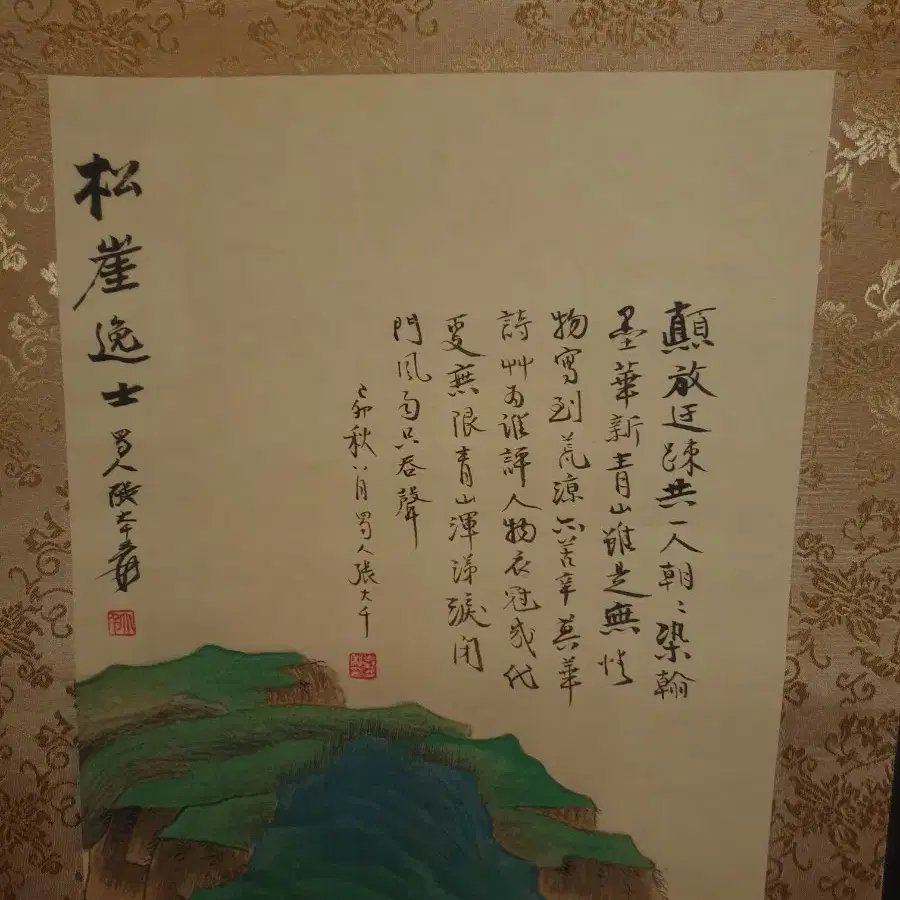 顛放迂疎共一人朝〻染翰
墨華新青山雖是無情
物寫到荒涼亦苦辛莫華
詩艸為誰評人物衣冠幾代
更無限青山渾涕淚閉
門風雨只吞聲
己卯秋八月蜀人張大千
松崖逸士蜀人張大千爰